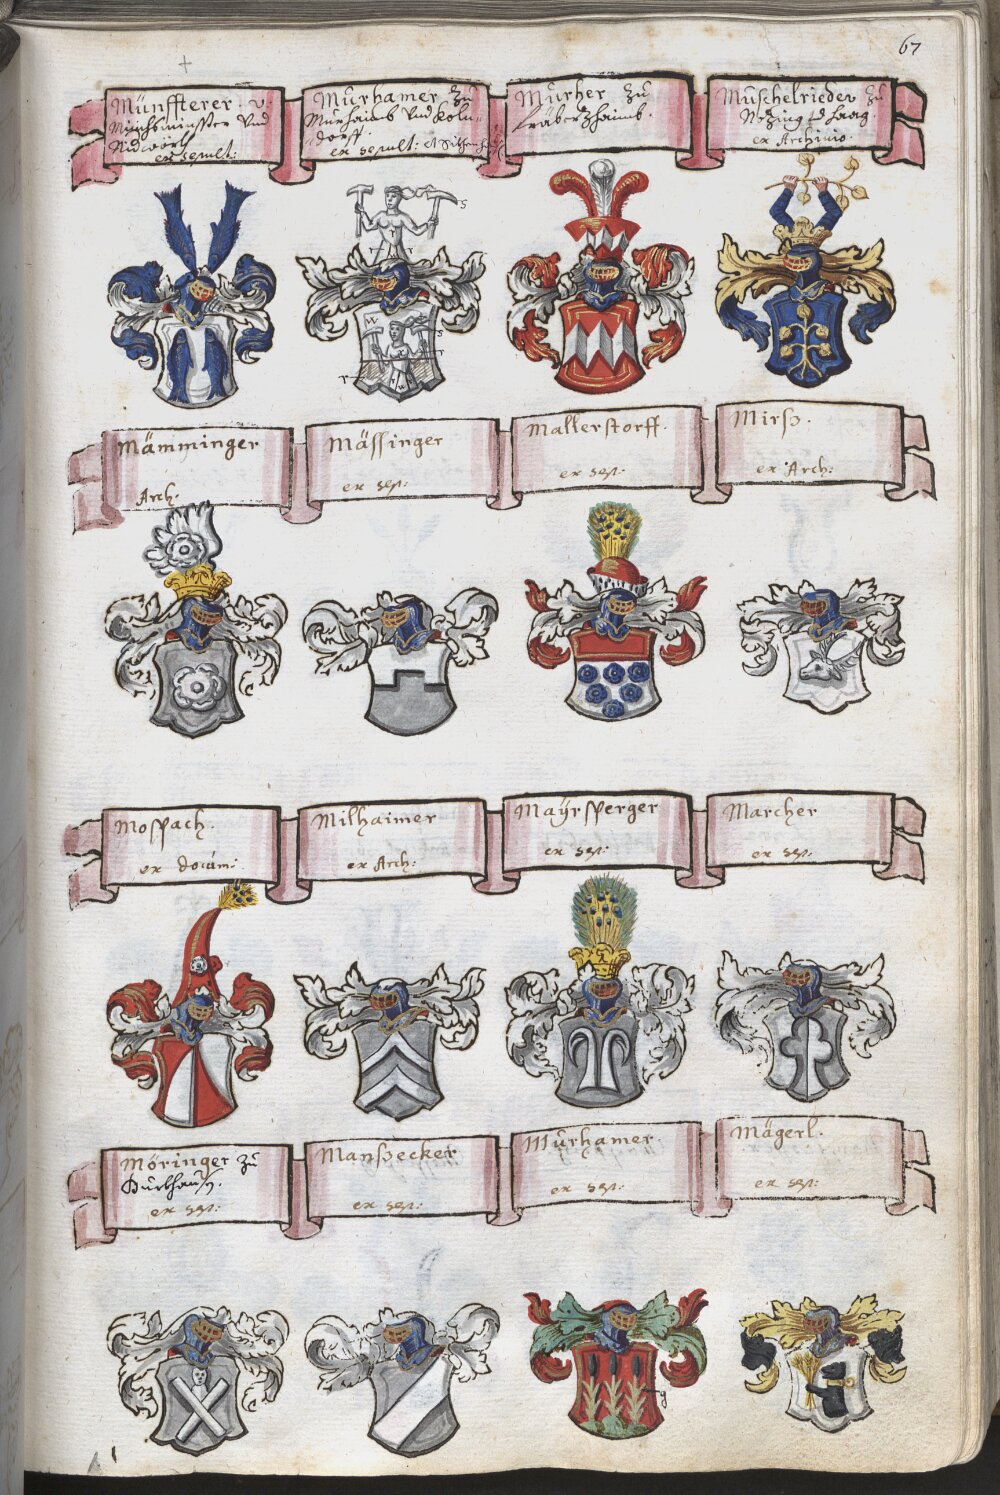 67
Münffterer. v.
Münchsminster Vnd
Nidwörth
ex sepult:
Murhamer Zu
Murhaimb Vnd Koln-
dorff.
ex sepult:
Murher Zu
Muschelrieder Zu
ex Archivio
S
W
S
r
Mämminger
Arch.
Mässinger
ex sep:
Mallerstorff.
ex sep:
Mirß.
ex Arch:
Mospach.
ex docum:
Milhaimer
ex Arch:
Mayrsperger
ex sep:
Marcher
ex sep:
Möringer zu
ex sep:
Manßecker
ex sep:
Murhamer
ex sep:
Mägerl.
ex sep:
g